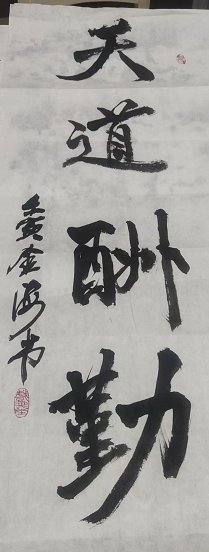 天道酬勤
黄金海书